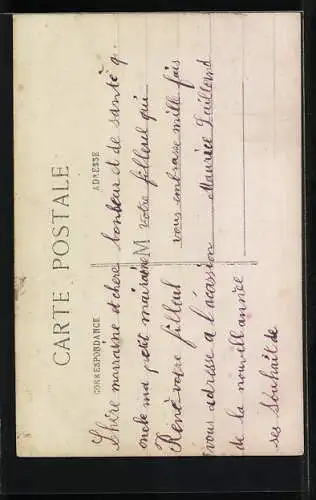 CARTE POSTALE
CORRESPONDANCE
Chère marraine et chere
petit mairaine
René votre filleul
vous adresse a l'occasion
de la nouvell année
ses souhait de
ADRESSE
bonheur et de santé
votre filleul qui
vous embrasse mille fois
Maurice